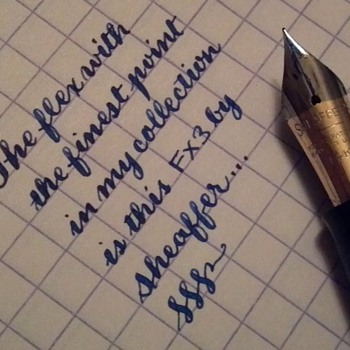 The flex with
the finest point
in my collection
is this FX3 by
sheaffer...
SSS
SHEAFFER